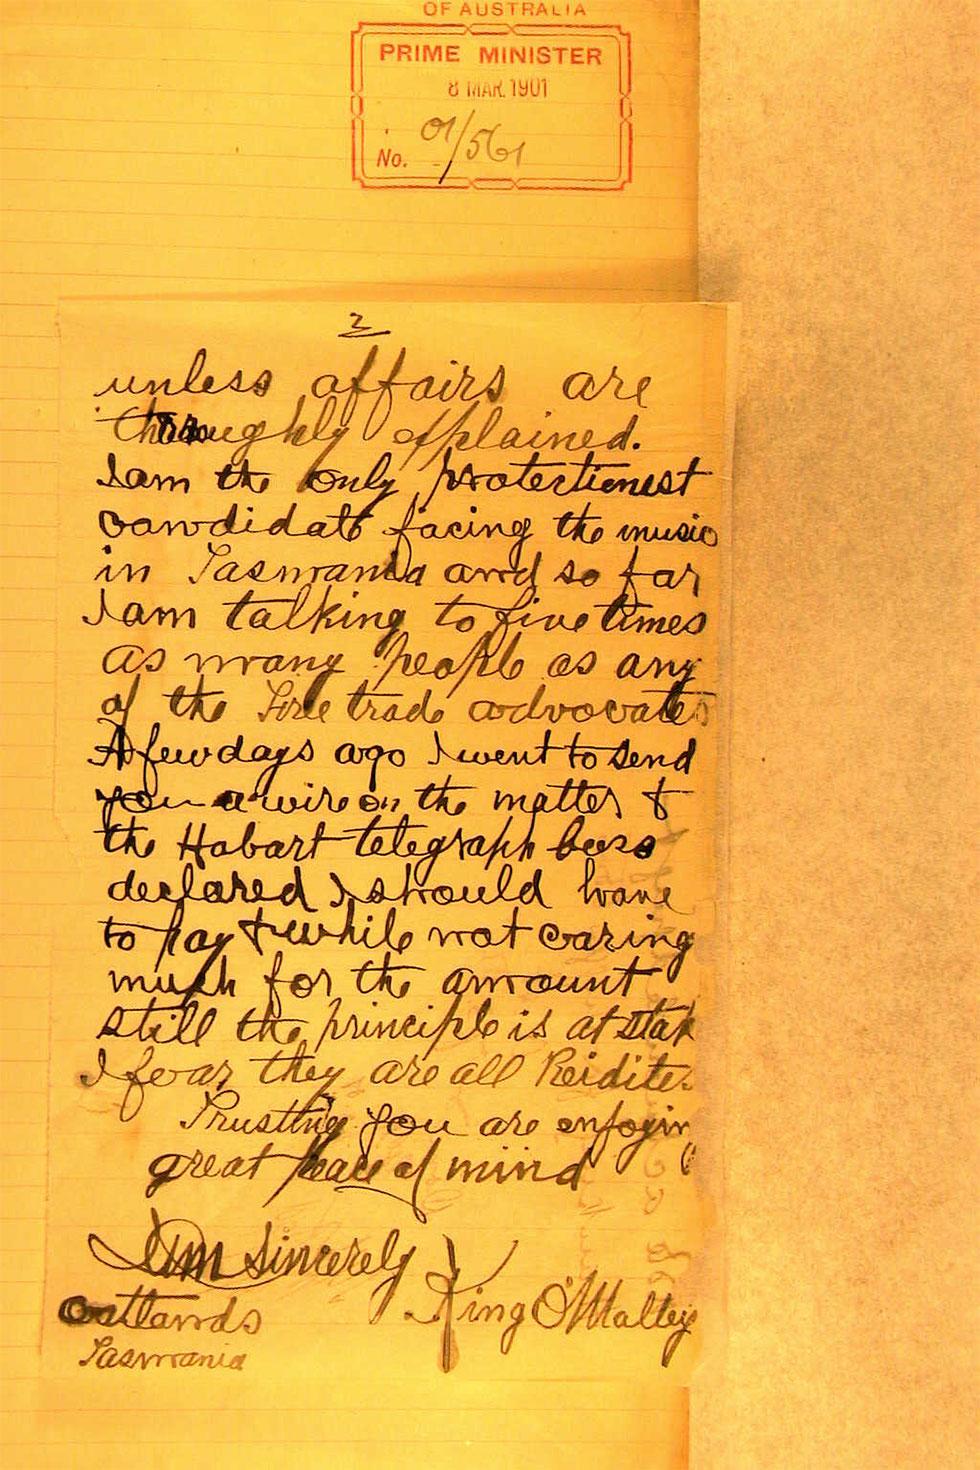 OF AUSTRALIA
PRIME MINISTER
8 MAR. 1901
No. 01/561
2
unless affairs are
thoroughly explained.
I am the only protectionest
candidate facing the music
in Tasmania and so far
I am talking to five times
as many people as any
of the Free trade advocates
A few days ago I went to send
you a wire on the matter &
the Hobart telegraph boss
declared I should have
to pay & while not caring
much for the amount
still the principle is at stak
I fear they are all Reidites
Trusting you are enjoyin
great peace of mind
I am sincerely
King O'Malley
Oatlands
Tasmania